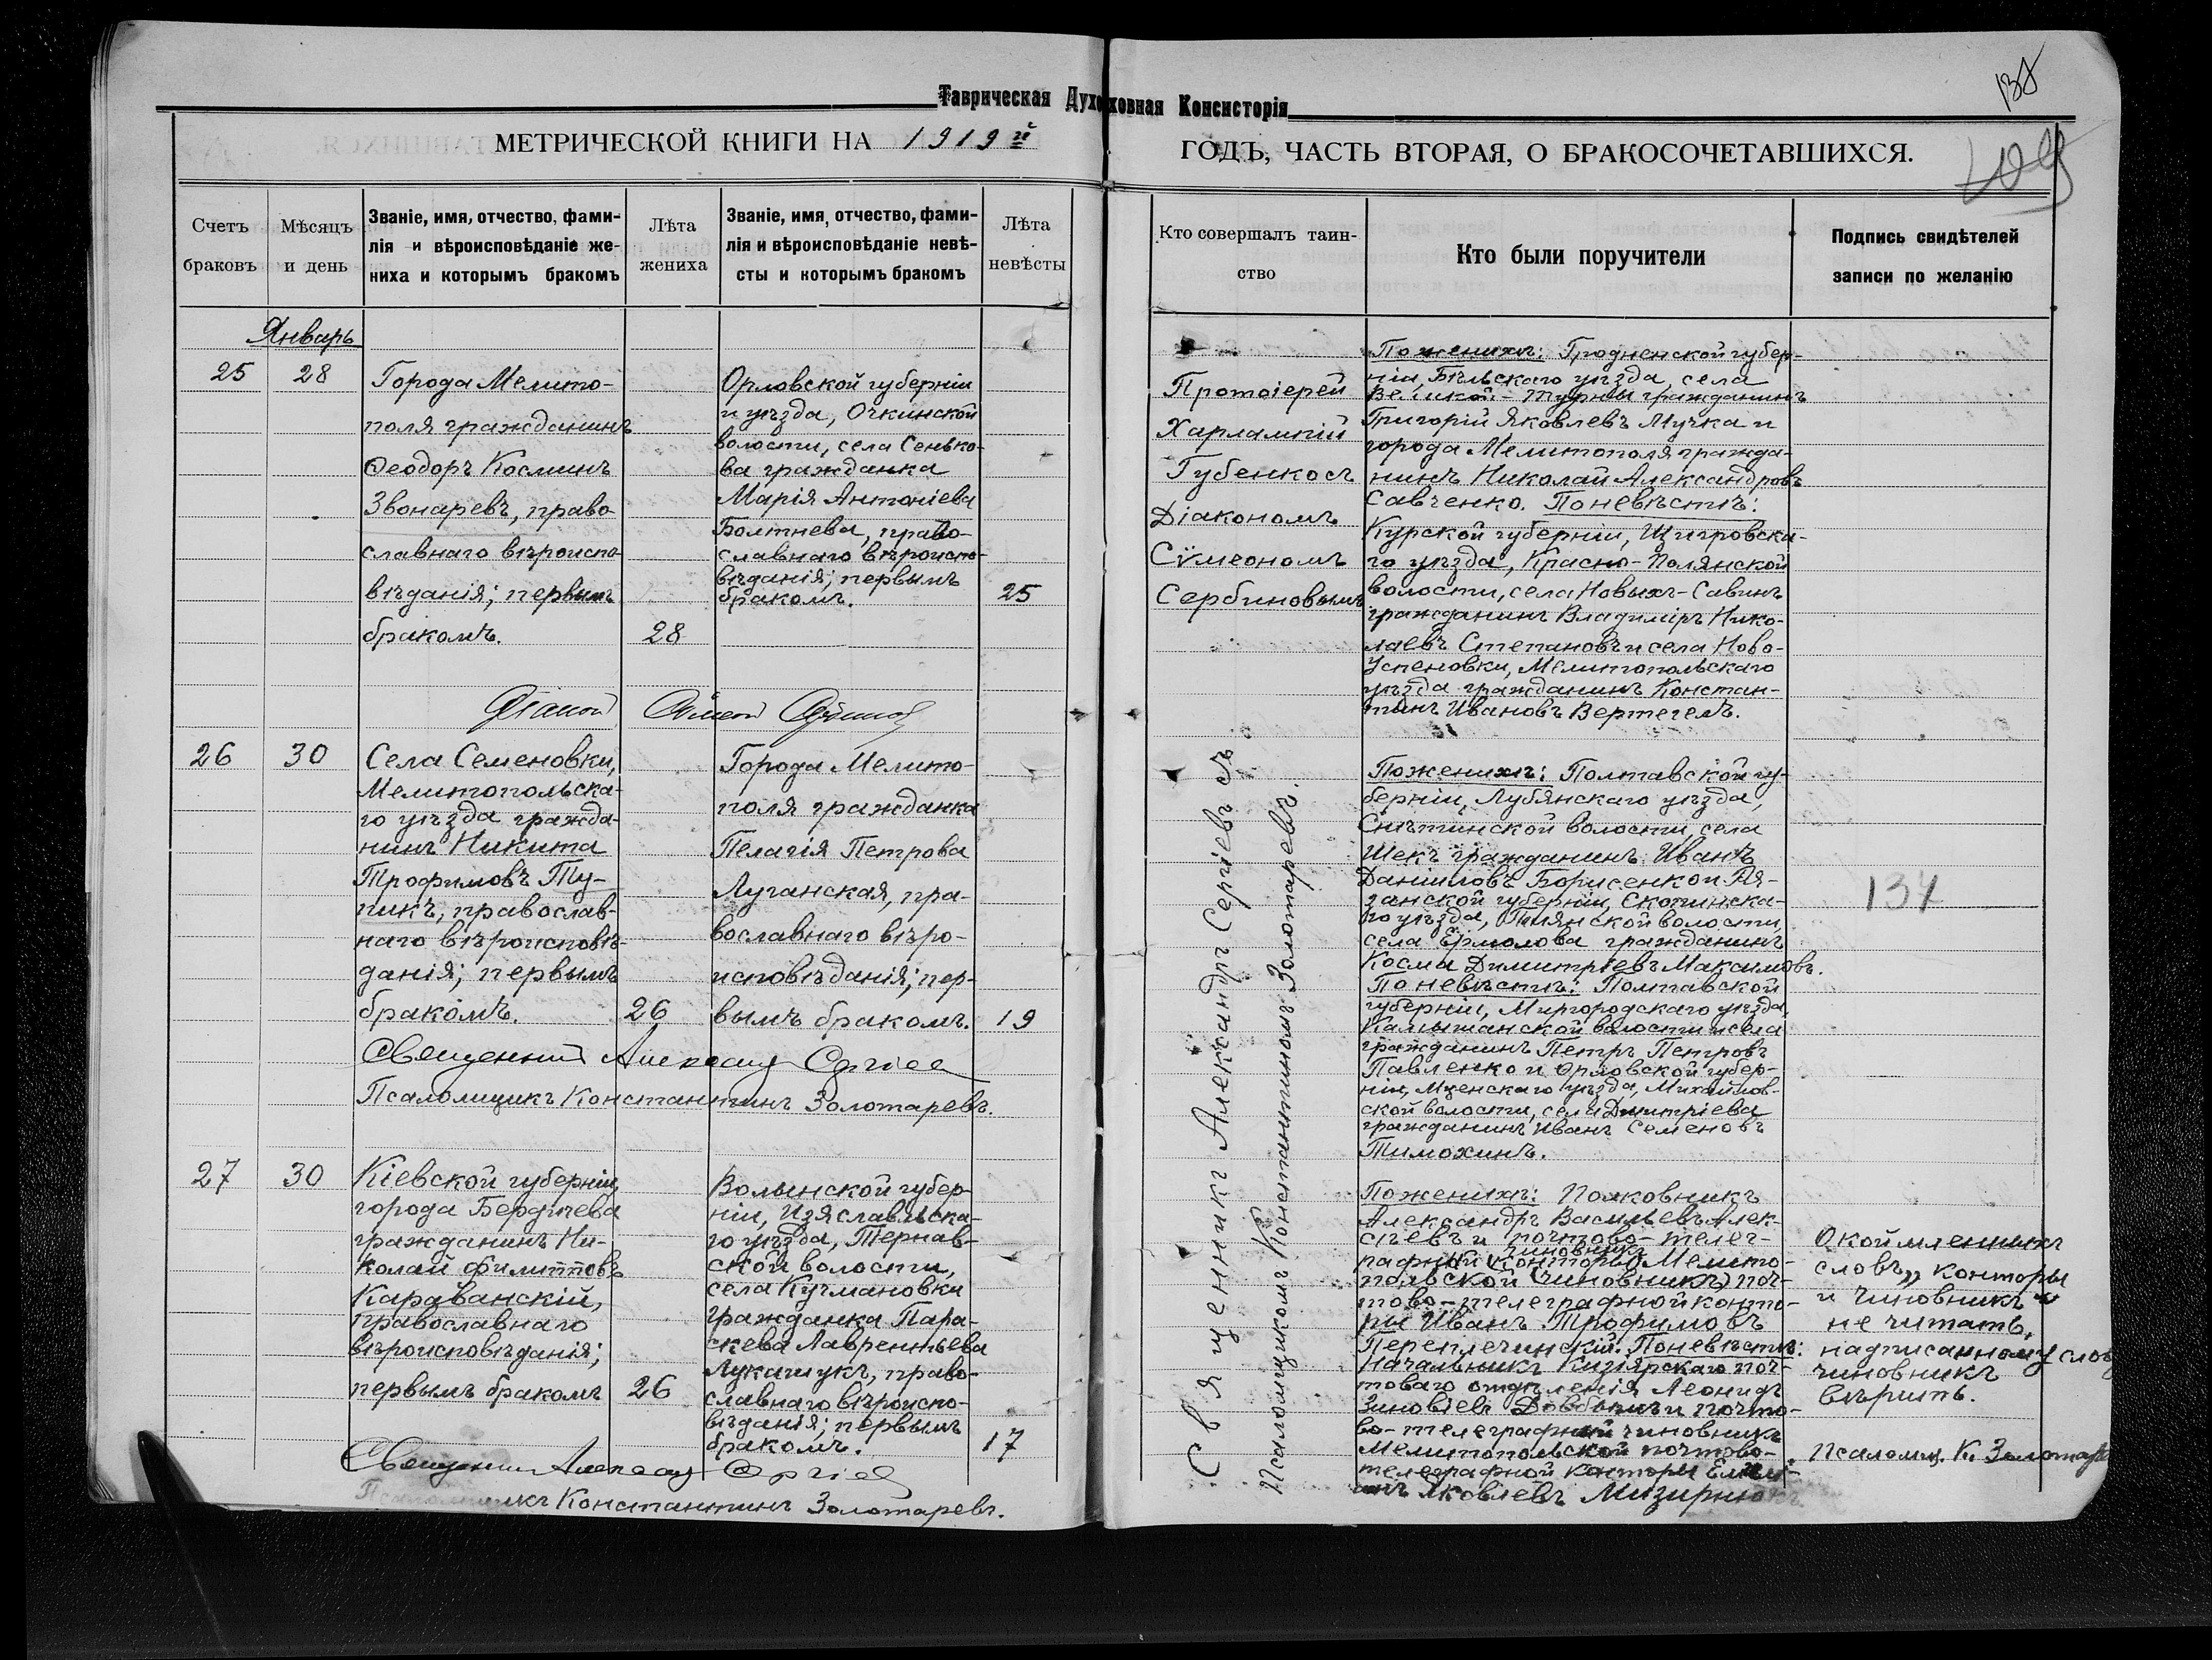 Таврическая Духовная Консисторія
138
МЕТРИЧЕСКОЙ КНИГИ НА 1919й
ГОДЪ, ЧАСТЬ ВТОРАЯ, О БРАКОСОЧЕТАВШИХСЯ.
Счетъ
браковъ
Мѣсяцъ
и день
Званіе, имя, отчество, фами-
лія и вѣроисповѣданіе же-
ниха и которымъ бракомъ
Лѣта
жениха
Званіе, имя, отчество, фами-
лія и вѣроисповѣданіе невѣ-
сты и которымъ бракомъ
Лѣта
невѣсты
Кто совершалъ таин-
ство
Кто были поручители
Подпись свидѣтелей
записи по желанію
Январь
25
28
Города Мелито-
поля гражданинъ
Ѳеодоръ Косминъ
Звонаревъ, право-
славнаго вѣроиспо-
вѣданія; первымъ
бракомъ.
28
Орловской губерніи
и уѣзда, Очкинской
волости, села Сенько-
ва гражданка
Марія Антоніева
Болтнева, право-
славнаго вѣроиспо-
вѣданія; первымъ
бракомъ.
25
Протоіерей
Харлампій
Губенко съ
Діакономъ
Сѵмеономъ
Сербиновымъ
По женихѣ: Гродненской губер-
ніи, Бѣльскаго уѣзда, села
Великой-Турны гражданинъ
Григорій Яковлевъ Мучка и
города Мелитополя гражда-
нинъ Николай Александровъ
Савченко. По невѣстѣ:
Курской губерніи, Щигровска-
го уѣзда, Красно-Полянской
волости, села Новыхъ-Савинъ
гражданинъ Владиміръ Нико-
лаевъ Степановъ и села Ново-
Успеновки, Мелитопольскаго
уѣзда гражданинъ Констан-
тинъ Ивановъ Вертегелъ.
26
30
Села Семеновки,
Мелитопольска-
го уѣзда гражда-
нинъ Никита
Трофимовъ Ту-
пикъ, православ-
наго вѣроисповѣ-
данія; первымъ
бракомъ.
26
Города Мелито-
поля гражданка
Пелагія Петрова
Луганская, пра-
вославнаго вѣро-
исповѣданія; пер-
вымъ бракомъ.
19
Священникъ Александръ Сергіевъ
Псаломщикъ Константинъ Золотаревъ.
Священникъ Александръ Сергіевъ съ
Псаломщикомъ Константиномъ Золотаревъ.
По женихѣ: Полтавской гу-
берніи, Лубянскаго уѣзда,
Снѣтинской волости, села
Шекъ гражданинъ Иванъ
Даніиловъ Борисенко и Ря-
занской губерніи, Скопинска-
го уѣзда, волости,
села Ермолова гражданинъ
Косма Димитріевъ Максимовъ.
По невѣстѣ: Полтавской
губерніи, Миргородскаго уѣзда,
волости и села
гражданинъ Петръ Петровъ
Павленко и Орловской губер-
ніи, Мценскаго уѣзда, Михайлов-
ской волости, села Димитріева
гражданинъ Иванъ Семеновъ
Тимохинъ.
134
27
30
Кіевской губерніи,
города Бердичева
гражданинъ Ни-
колай Филипповъ
Караванскій,
православнаго
вѣроисповѣданія;
первымъ бракомъ
26
Волынской губер-
ніи, Изяславльска-
го уѣзда, Тернав-
ской волости,
села Кучмановки
гражданка Пара-
скева Лаврентьева
Лукашукъ, право-
славнаго вѣроиспо-
вѣданія; первымъ
бракомъ.
17
Священникъ Александръ Сергіевъ
Псаломщикъ Константинъ Золотаревъ.
По женихѣ: Полковникъ
Александръ Васильевъ Алек-
сѣевъ и почтово-телег-
чиновникъ
рафной (конторы) Мелито-
польской (чиновникъ) поч-
тово-телеграфной конто-
ры Иванъ Трофимовъ
Переплечинскій. По невѣстѣ:
Начальникъ Кизіярскаго поч-
товаго отдѣленія Леонидъ
Зиновіевъ и почто-
во-телеграфный чиновникъ
Мелитопольской почтово-
телеграфной конторы
Яковлевъ Мизирнюкъ.
Окоймленныхъ
словъ „конторы
и чиновникъ“
не читать,
надписанному слову
чиновникъ
вѣрить.
Псаломщ. К. Золотарев